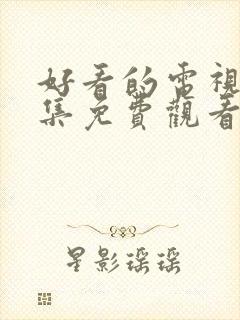 好看的電視
集免費觀看
星影瑶瑶